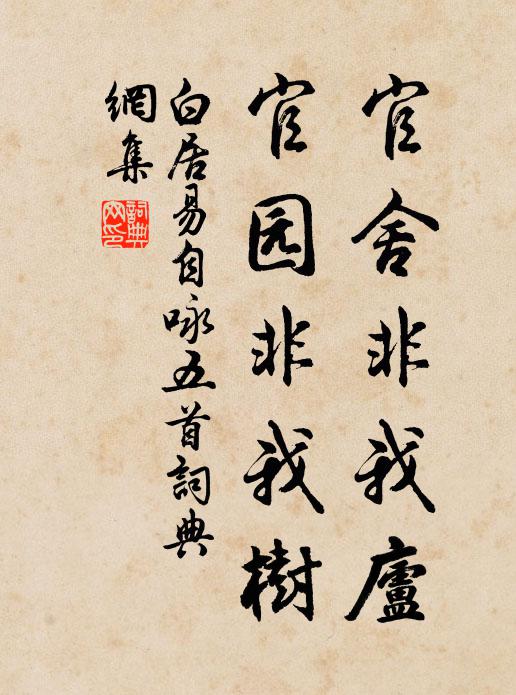 官舍非我廬
官园非我樹
白居易自咏五首詞典
網集
詞典
网印